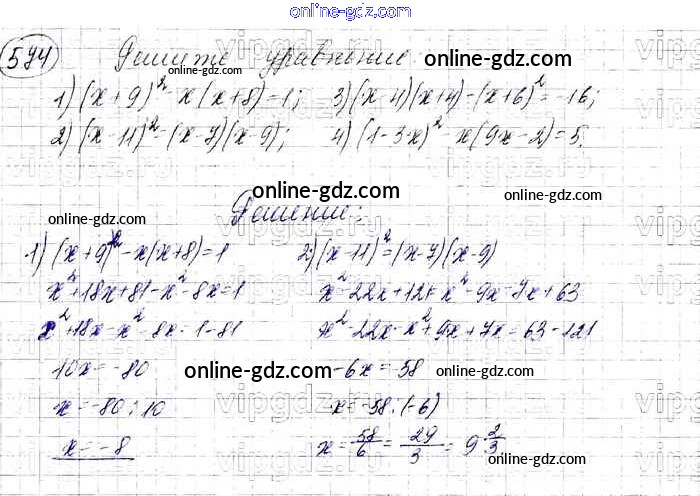 online-gdz.com
574 Решите уравнение online-gdz.com
1) (x+9)² - x(x+8)=1; 3) (x-4)(x+4)-(x+6)²=-16;
2) (x-11)²=(x-7)(x-9); 4) (1-3x)²-x(9x-2)=5.
online-gdz.com
Решение:
online-gdz.com online-gdz.com
1) (x+9)²-x(x+8)=1 2) (x-11)²=(x-7)(x-9)
x²+18x+81-x²-8x=1 x²-22x+121=x²-9x-7x+63
x²+18x-x²-8x=1-81 x²-22x-x²+9x+7x=63-121
10x=-80 online-gdz.com -6x=58 online-gdz.com
x=-80:10 x=-58:(-6)
x=-8 x=58/6=29/3=9 2/3
online-gdz.com online-gdz.com